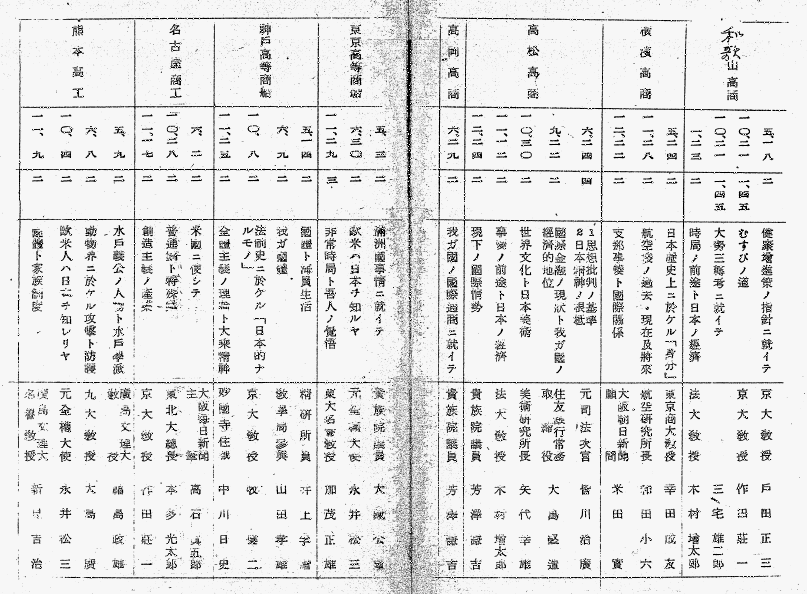 和歌山高商
五、一八 二 健康増進策ノ指針ニ就イテ 京大教授 戸田正三
一〇、二一 一、四五 むすびノ道 京大教授 作田莊一
一〇、二一 一、四五 大勢三轉考ニ就イテ 三宅雄二郎
一、二三 二 時局ノ前途ト日本ノ經濟 法大教授 木村増太郎
横濱高商
五、二四 二 日本歴史上ニ於ケル「身分」 東京商大教授 幸田成友
一、二八 二 航空機ノ過去、現在及將來 航空研究所長 和田小六
二、二二 二 支那事變ト國際關係 大阪朝日新聞顧問 米田實
高松高商
六、二四 四 1思想批判ノ基準 2日本精神ノ根柢 元司法次官 皆川治廣
九、二二 二 國際金融ノ現状ト我ガ國ノ經濟的地位 住友銀行常務取締役 大島堅造
一〇、三〇 二 世界文化ト日本美術 美術研究所長 矢代幸雄
一一、一二 二 事變ノ前途ト日本ノ經濟 法大教授 木村増太郎
一二、二四 二 現下ノ國際情勢 貴族院議員 芳澤謙吉
高岡高商
六、二九 二 我ガ國ノ國際通商ニ就イテ 貴族院議員 芳澤謙吉
東京高等商船
五、三 二 滿洲國事情ニ就イテ 貴族院議員 大公望
六、三〇 二 歐米ハ日本ヲ知ルヤ 元大使 永井松三
一一、二九 三 非常時局ト吾人ノ覺悟 東大名譽教授 加茂正雄
神戸高等商船
五、一四 二 ト海員生活 精研所員 井上
六、九 二 我ガ國體 教學局參與 山田孝雄
一〇、八 二 法制史ニ於ケル「日本的ナルモノ」 京大教授 牧健二
一一、二五 二 全體主義ノ理論ト大乘精神 妙國寺住職 中川日史
名古屋高工
六、二 二 米國ニ使シテ 大阪毎日新聞主 高石真五郎
一〇、二八 二 普通ト特殊 東北大總長 本多光太郎
一一、一七 二 創造主義ノ産業 京大教授 作田莊一
熊本高工
五、九 二 水戸義公ノ人ト水戸學派 廣島文理大教授 福島政雄
六、八 二 動物界ニ於ケル攻撃ト防禦 九大教授 大島廣
一〇、四 二 歐米人ハ日本ヲ知レリヤ 元全權大使 永井松三
一一、九 二 ト家族制度 廣島文理大名譽教授 新見吉治